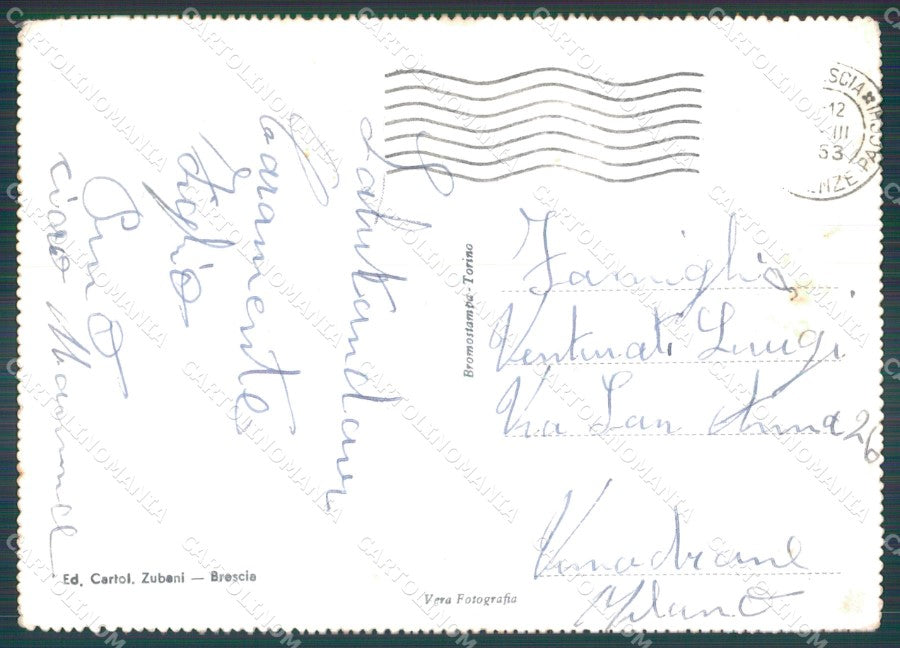 Salutandovi
Caramente
Figlio
Pino
ciao Mamma
Famiglia
Venturati Luigi
Via San Anna 26
Milano
Bromostampa - Torino
Ed. Cartol. Zubani — Brescia
Vera Fotografia
SCIA
12
III
53
CARTOLINOMANIA